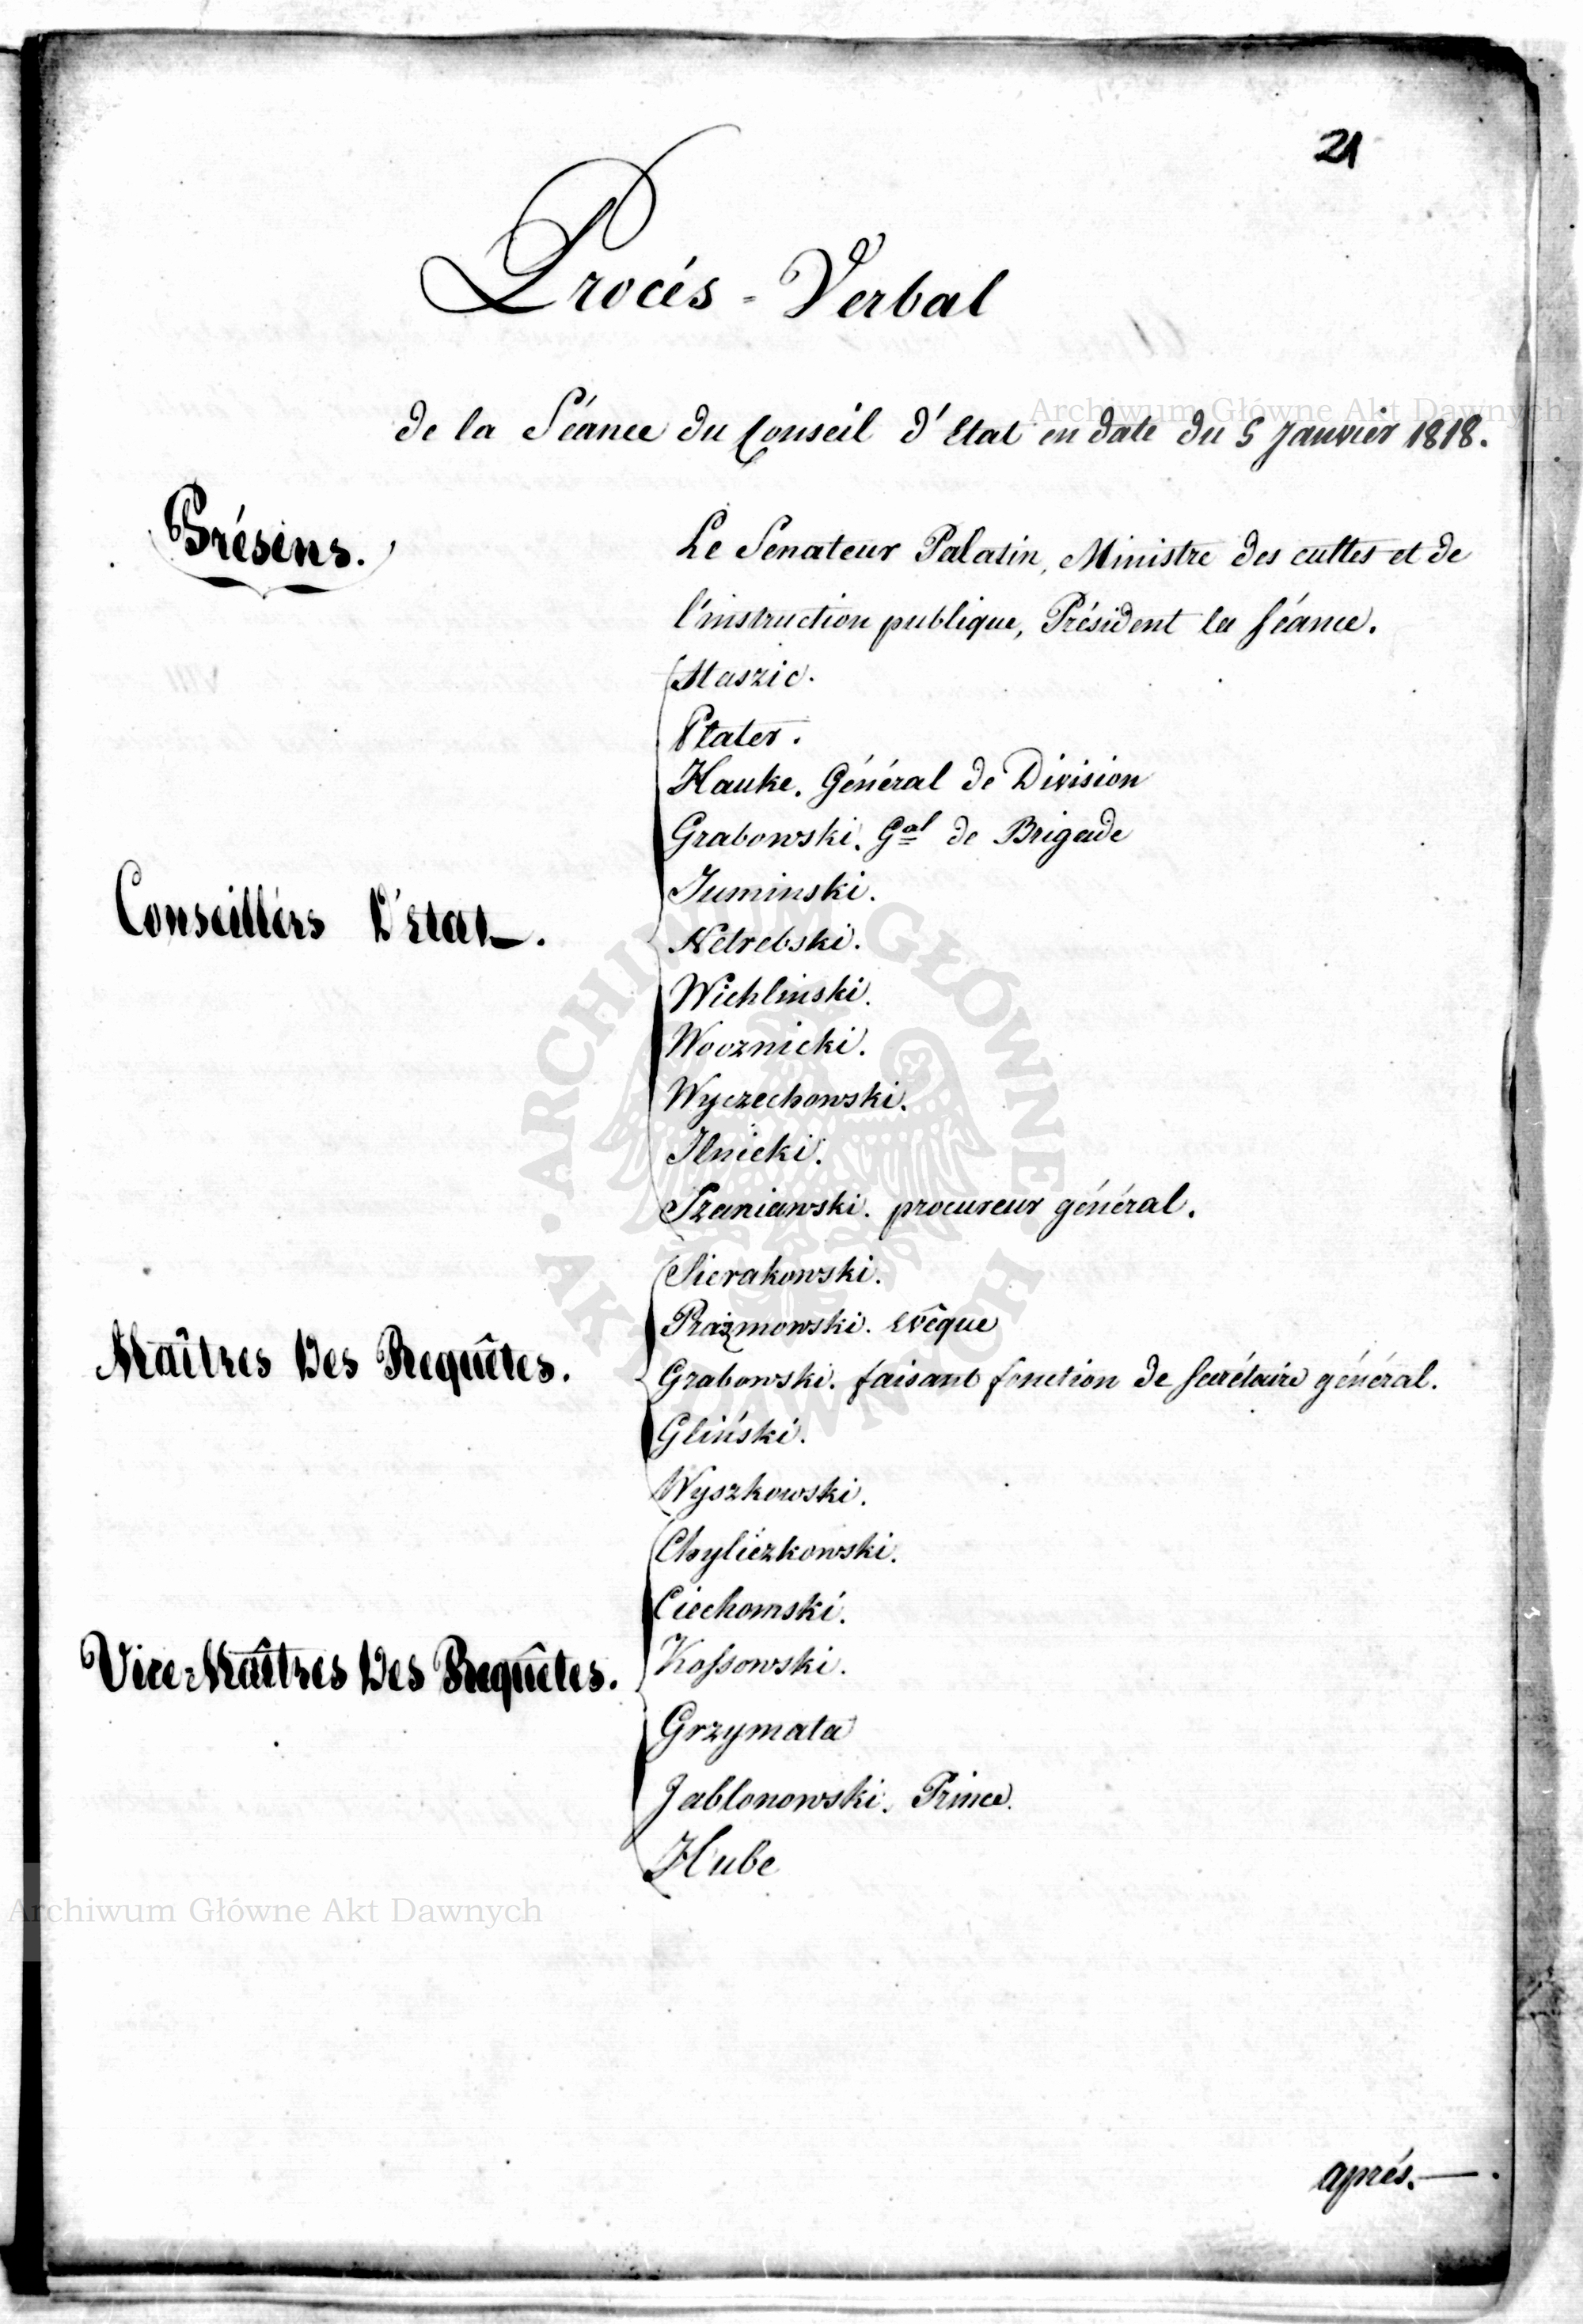 21
Procés-Verbal
de la Séance du Conseil d'Etat en date du 5 Janvier 1818.
Présens.
Le Senateur Palatin, Ministre des cultes et de
l'instruction publique, Président la Séance.
Conseillérs D'Etat.
Staszic.
Plater.
Hauke. Général de Division
Grabowski. Gal de Brigade
Suminski.
Netrebski.
Wichlinski.
Woznicki.
Wyczechowski.
Ilnicki.
Szaniawski. procureur général.
Maîtres Des Requêtes.
Sierakowski.
Prażmowski. evêque
Grabowski. faisant fonction de Secrétaire général.
Gliński.
Wyszkowski.
Vice-Maîtres Des Requêtes.
Chyliczkowski.
Ciechomski.
Kossowski.
Grzymała
Jablonowski. Prince.
Hube
aprés.—.
Archiwum Główne Akt Dawnych
ARCHIWUM GŁÓWNE AKT DAWNYCH
Archiwum Główne Akt Dawnych